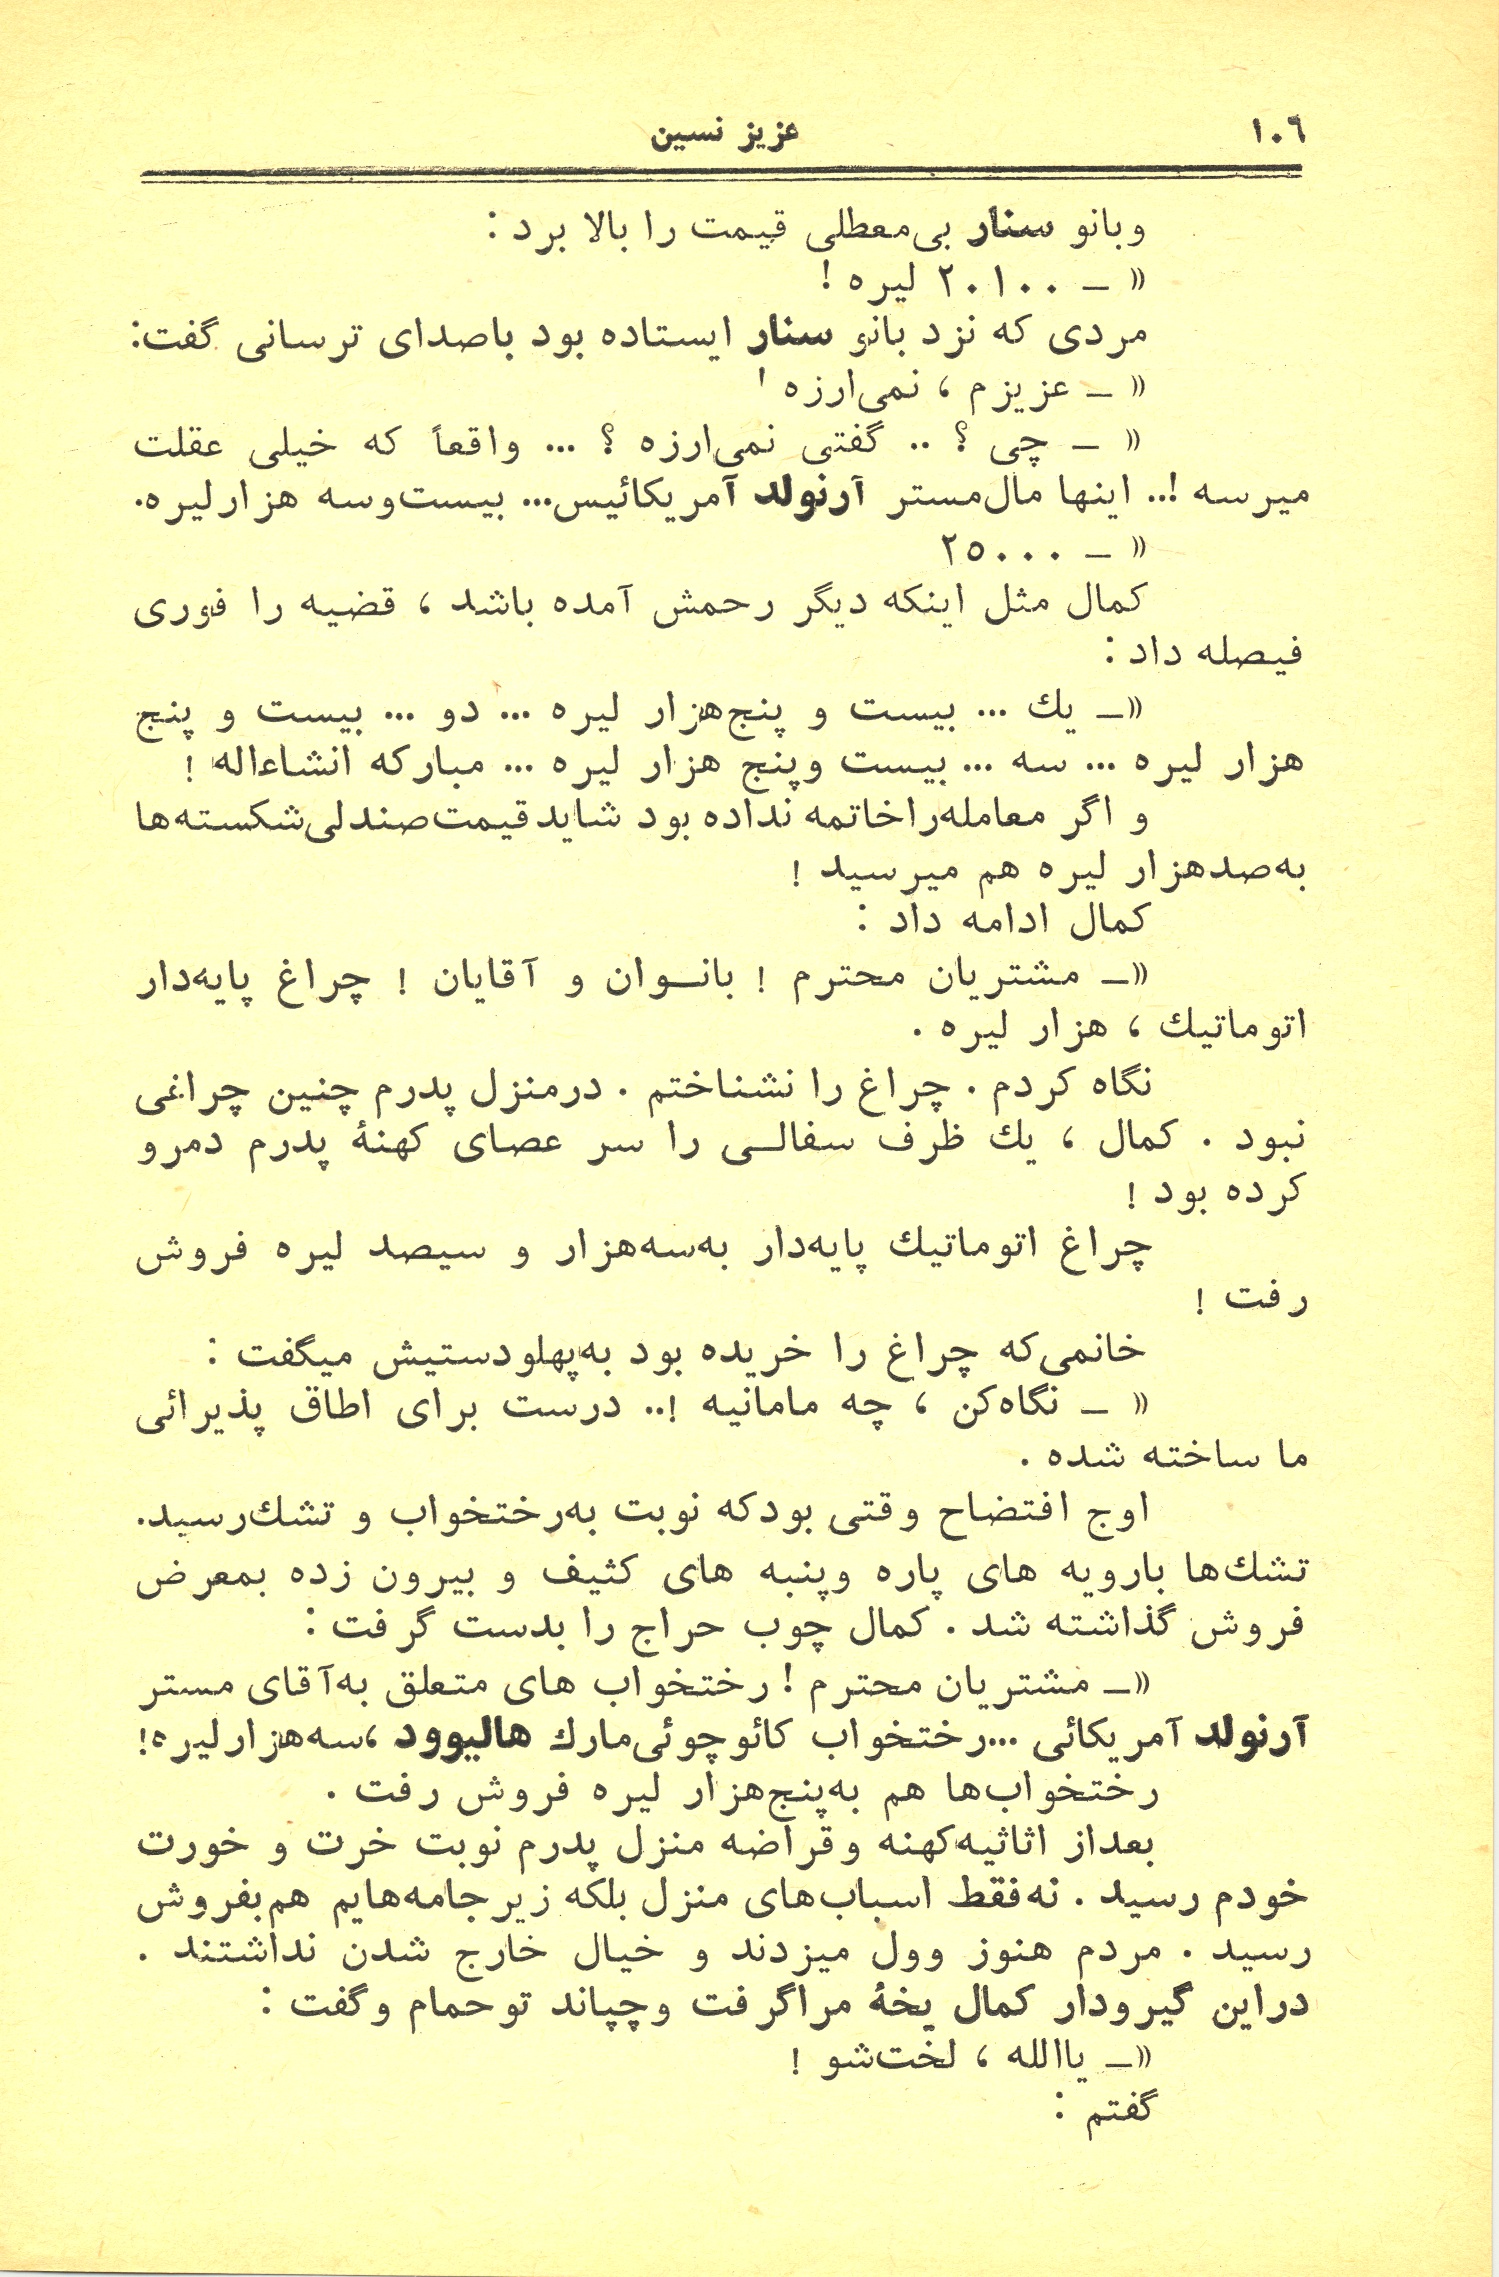 ١٠٦
عزیز نسین
وبانو سنار بی‌معطلی قیمت را بالا برد :
« – ٢٠١٠٠ لیره !
مردی که نزد بانو سنار ایستاده بود باصدای ترسانی گفت:
« – عزیزم ، نمی‌ارزه !
« – چی ؟ .. گفتی نمی‌ارزه ؟ ... واقعاً که خیلی عقلت
میرسه !.. اینها مال‌مستر آرنولد آمریکائیس... بیست‌وسه هزارلیره.
« – ٢٥٠٠٠
کمال مثل اینکه دیگر رحمش آمده باشد ، قضیه را فوری
فیصله داد :
«– یك ... بیست و پنج‌هزار لیره ... دو ... بیست و پنج
هزار لیره ... سه ... بیست وپنج هزار لیره ... مبارکه انشاءاله !
و اگر معامله‌راخاتمه نداده بود شایدقیمت‌صندلی‌شکسته‌ها
به‌صدهزار لیره هم میرسید !
کمال ادامه داد :
«– مشتریان محترم ! بانـوان و آقایان ! چراغ پایه‌دار
اتوماتیك ، هزار لیره .
نگاه کردم . چراغ را نشناختم . درمنزل پدرم چنین چراغی
نبود . کمال ، یك ظرف سفالـی را سر عصای کهنهٔ پدرم دمرو
کرده بود !
چراغ اتوماتیك پایه‌دار به‌سه‌هزار و سیصد لیره فروش
رفت !
خانمی‌که چراغ را خریده بود به‌پهلودستیش میگفت :
« – نگاه‌کن ، چه مامانیه !.. درست برای اطاق پذیرائی
ما ساخته شده .
اوج افتضاح وقتی بودکه نوبت به‌رختخواب و تشك‌رسید.
تشك‌ها بارویه های پاره وپنبه های کثیف و بیرون زده بمعرض
فروش گذاشته شد . کمال چوب حراج را بدست گرفت :
«– مشتریان محترم ! رختخواب های متعلق به‌آقای مستر
آرنولد آمریکائی ...رختخواب کائوچوئی‌مارك هالیوود ،سه‌هزارلیره!
رختخواب‌ها هم به‌پنج‌هزار لیره فروش رفت .
بعداز اثاثیه‌کهنه وقراضه منزل پدرم نوبت خرت و خورت
خودم رسید . نه‌فقط اسباب‌های منزل بلکه زیرجامه‌هایم هم‌بفروش
رسید . مردم هنوز وول میزدند و خیال خارج شدن نداشتند .
دراین گیرودار کمال یخهٔ مراگرفت وچپاند توحمام وگفت :
«– یاالله ، لخت‌شو !
گفتم :